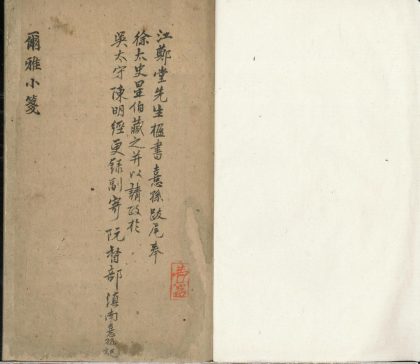 江鄭堂先生樞書憙孫跋尾奉
徐太史星伯藏之并以請政於
吳太守陳明經更錄副寄阮督部滇南憙孫記
爾雅小箋